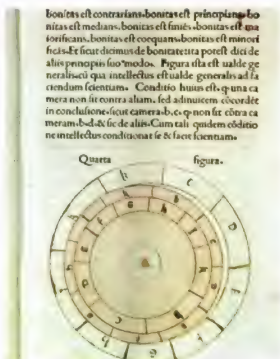 bonitas est contrarians. bonitas est principians. bo
nitas est medians. bonitas est finiēs. bonitas est ma
iorificans. bonitas est coequans. bonitas est minori
ficās. Et sicut diximus de bonitate ita potest dici de
aliis principiis suo modo. Figura ista est ualde ge
neralis: cū qua intellectus est ualde generalis ad fa
ciendum scientiam. Conditio huius est. q una ca
mera non sit contra aliam. sed adinuicem cōcordēt
in conclusione. sicut camera. b. c. q non sit cōtra ca
meram. b. d. & sic de aliis. Cum tali quidem cōditio
ne intellectus conditionat se & facit scientiam.
Quarta figura.